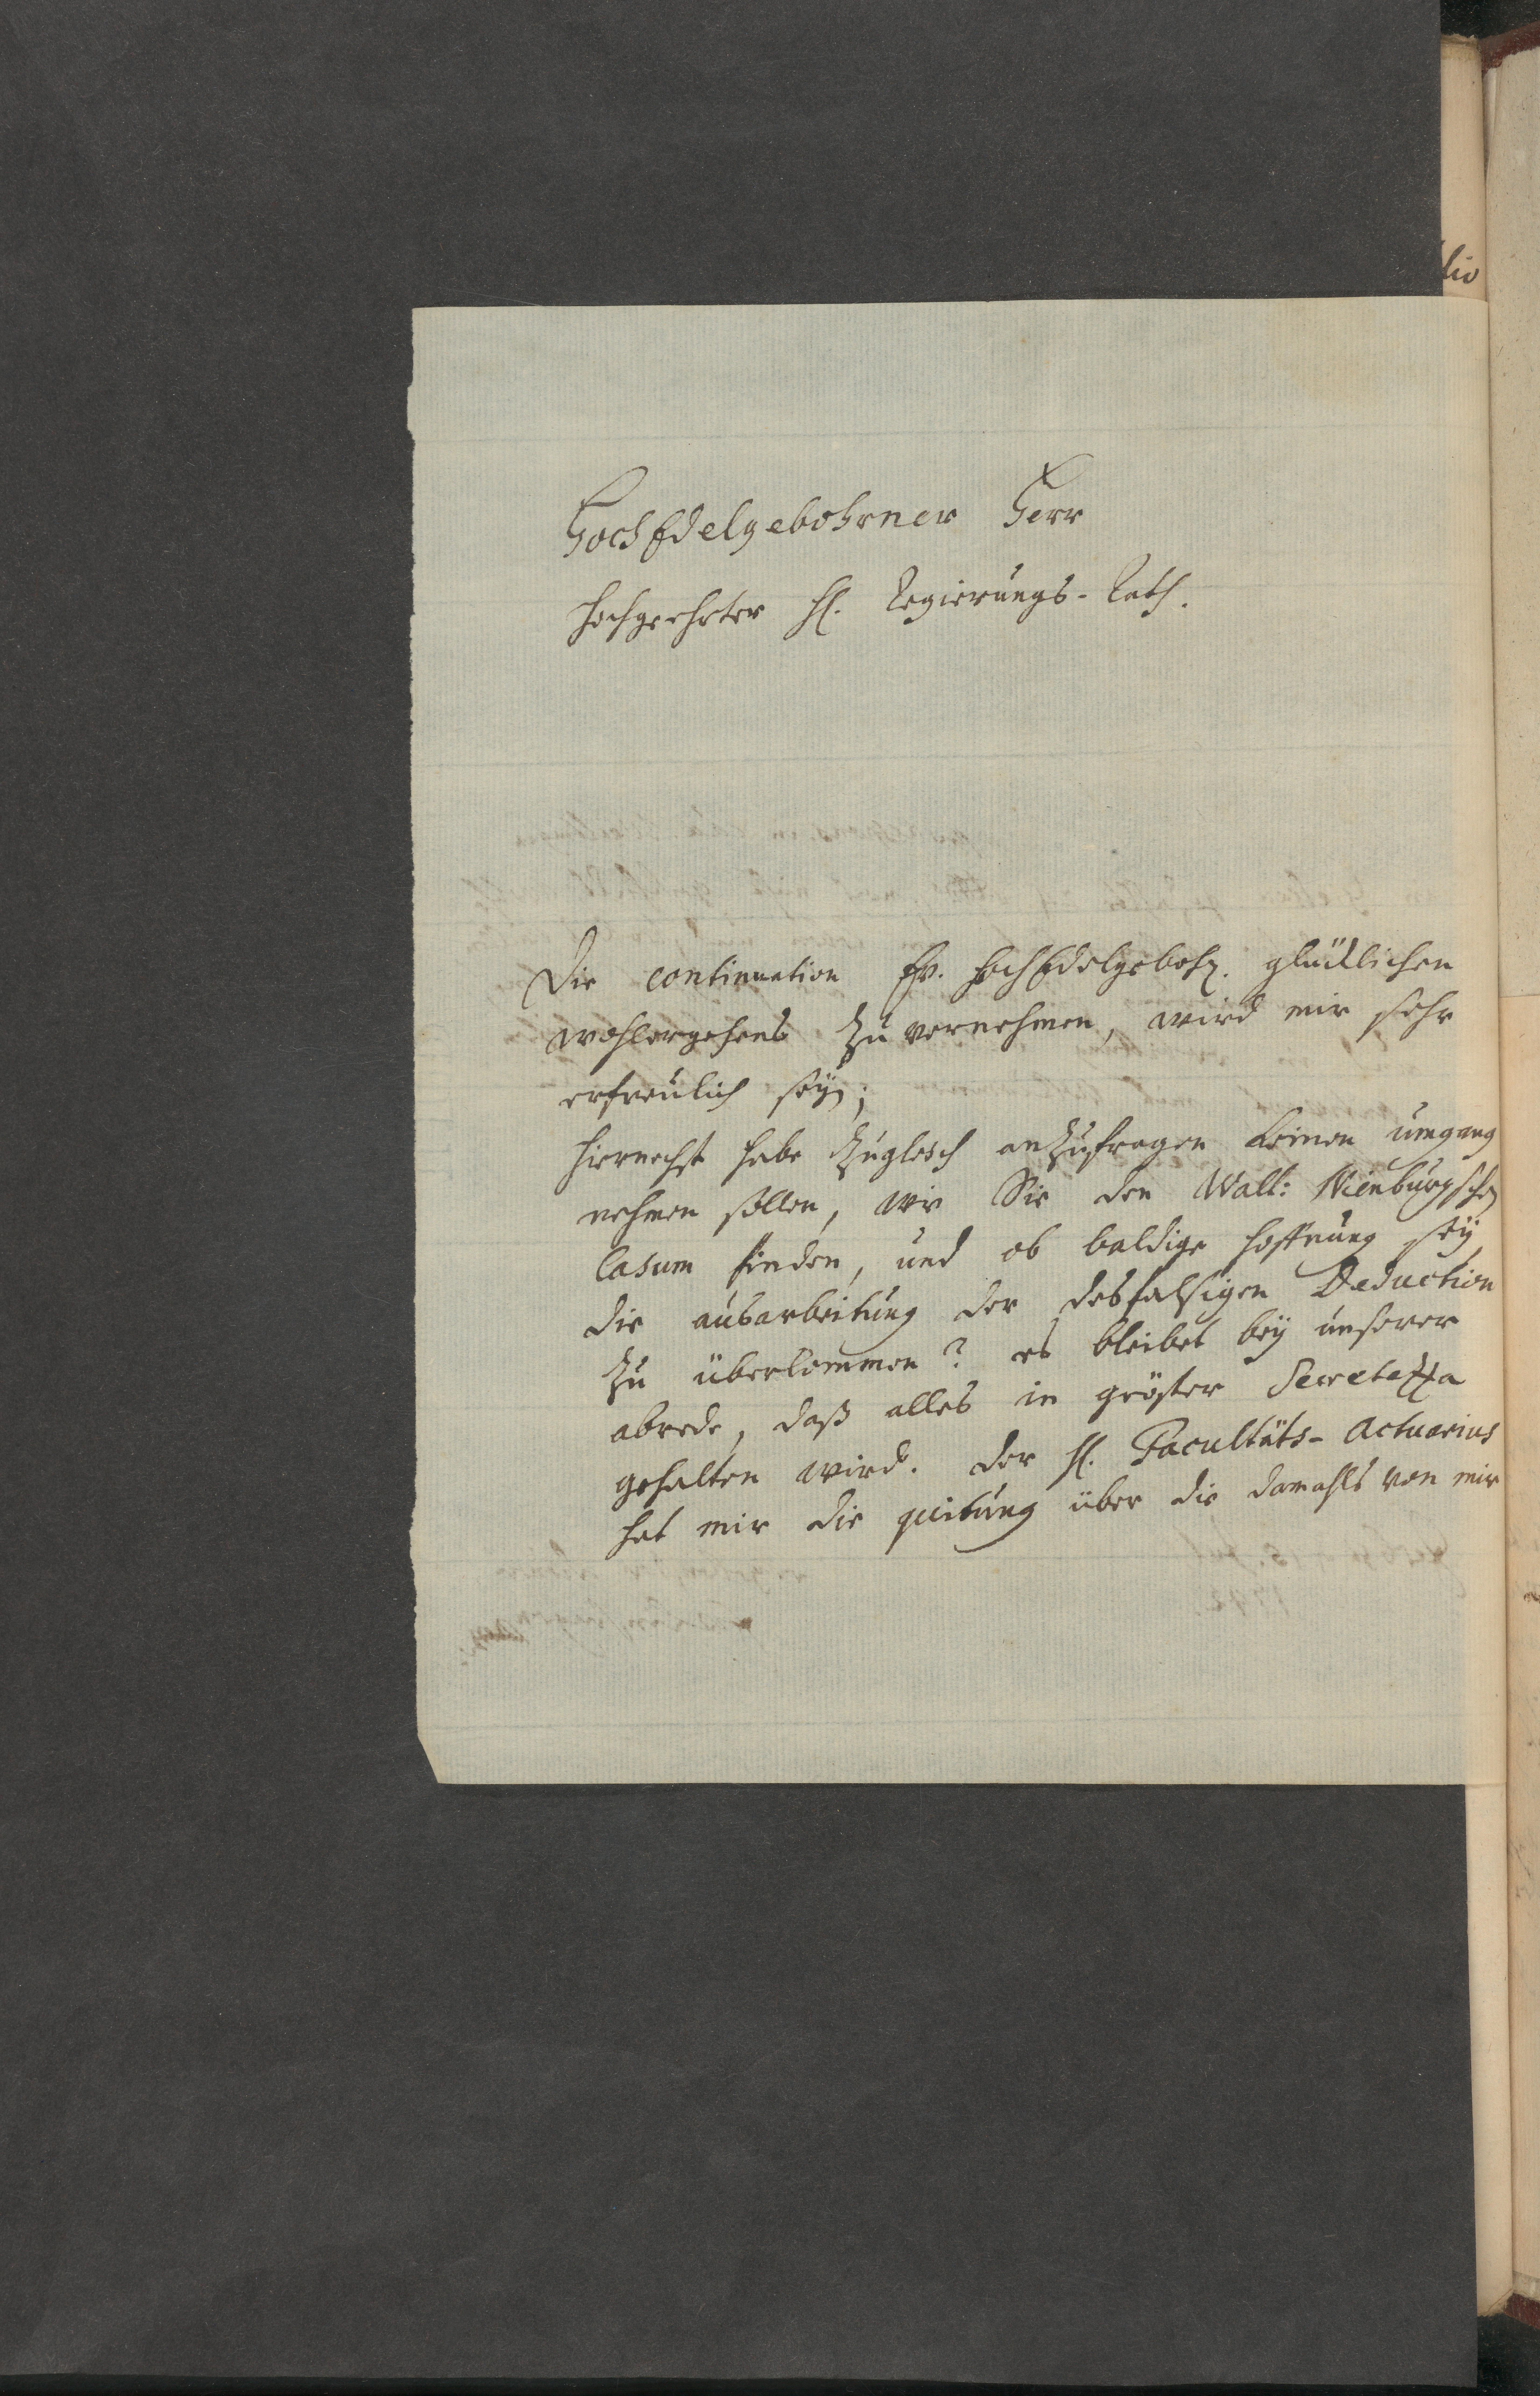 Hochedelgebohrner Herr
Hochgeehrter H. Regierungs-Rath.
Die continuation Ew. HochEdelgebohr. glücklichen
wohlergehens zu vernehmen, wird mir sehr
erfreulich seyn;
hiernechst habe zugleich anzufragen keinen umgang
nehmen sollen, wie Sie den Wall: Nienburgschen
Casum finden, und ob baldige hoffnung sey
die ausarbeitung der desfalsigen Deduction
zu überkommen? es bleibet bey unserer
abrede, daß alles in gröster Secretezza
gehalten wird. Der H. Facultäts-Actuarius
hat mir die quitung über die damahls von mir
lio